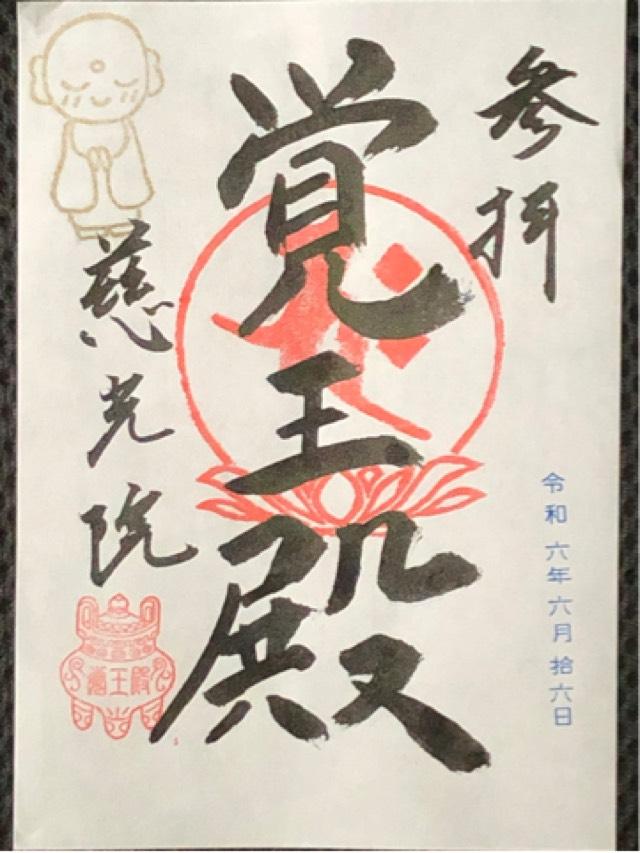 参拝
覚王殿
慈光院
令和六年六月拾六日
覚王殿